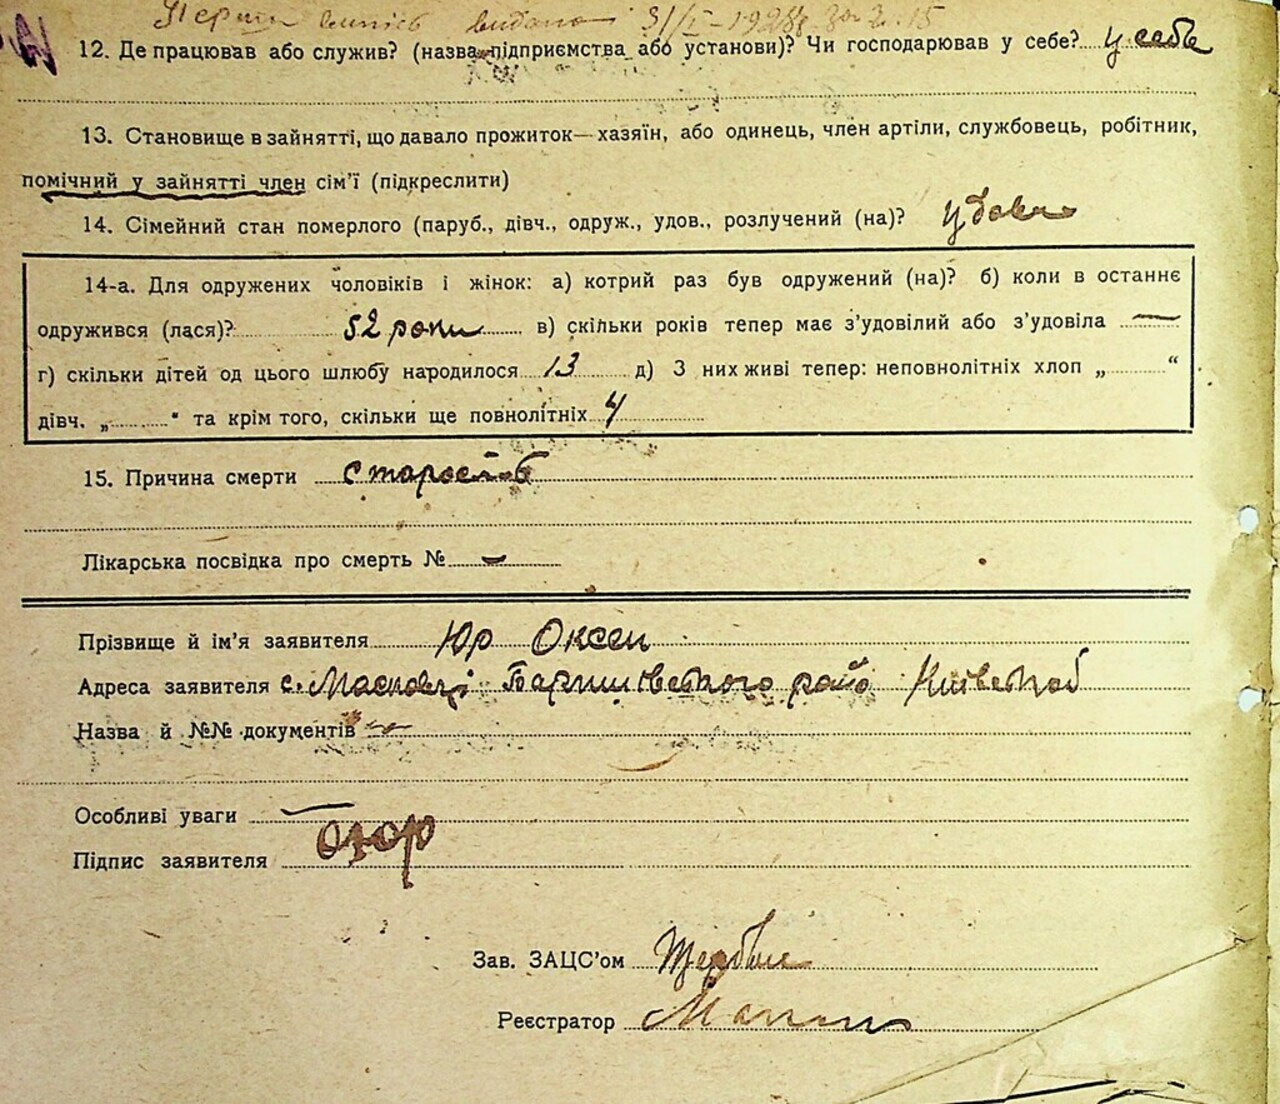 видано 31/I-1928 р. за № 15
12. Де працював або служив? (назва підприємства або установи)? Чи господарював у себе? у себе
13. Становище в зайнятті, що давало прожиток—хазяїн, або одинець, член артіли, службовець, робітник,
помічний у зайнятті член сім’ї (підкреслити)
14. Сімейний стан померлого (паруб., дівч., одруж., удов., розлучений (на)? удова
14-а. Для одружених чоловіків і жінок: а) котрий раз був одружений (на)? б) коли в останнє
одружився (лася)? 52 роки в) скільки років тепер має з’удовілий або з’удовіла —
г) скільки дітей од цього шлюбу народилося 13 д) З них живі тепер: неповнолітніх хлоп „ “
дівч. „ “ та крім того, скільки ще повнолітніх 4
15. Причина смерти старость
Лікарська посвідка про смерть № —
Прізвище й ім’я заявителя Юр Оксен
Адреса заявителя с. Масковці Баришівського райо
Назва й №№ документів —
Особливі уваги —
Підпис заявителя ОЮр
Зав. ЗАЦС’ом
Реєстратор